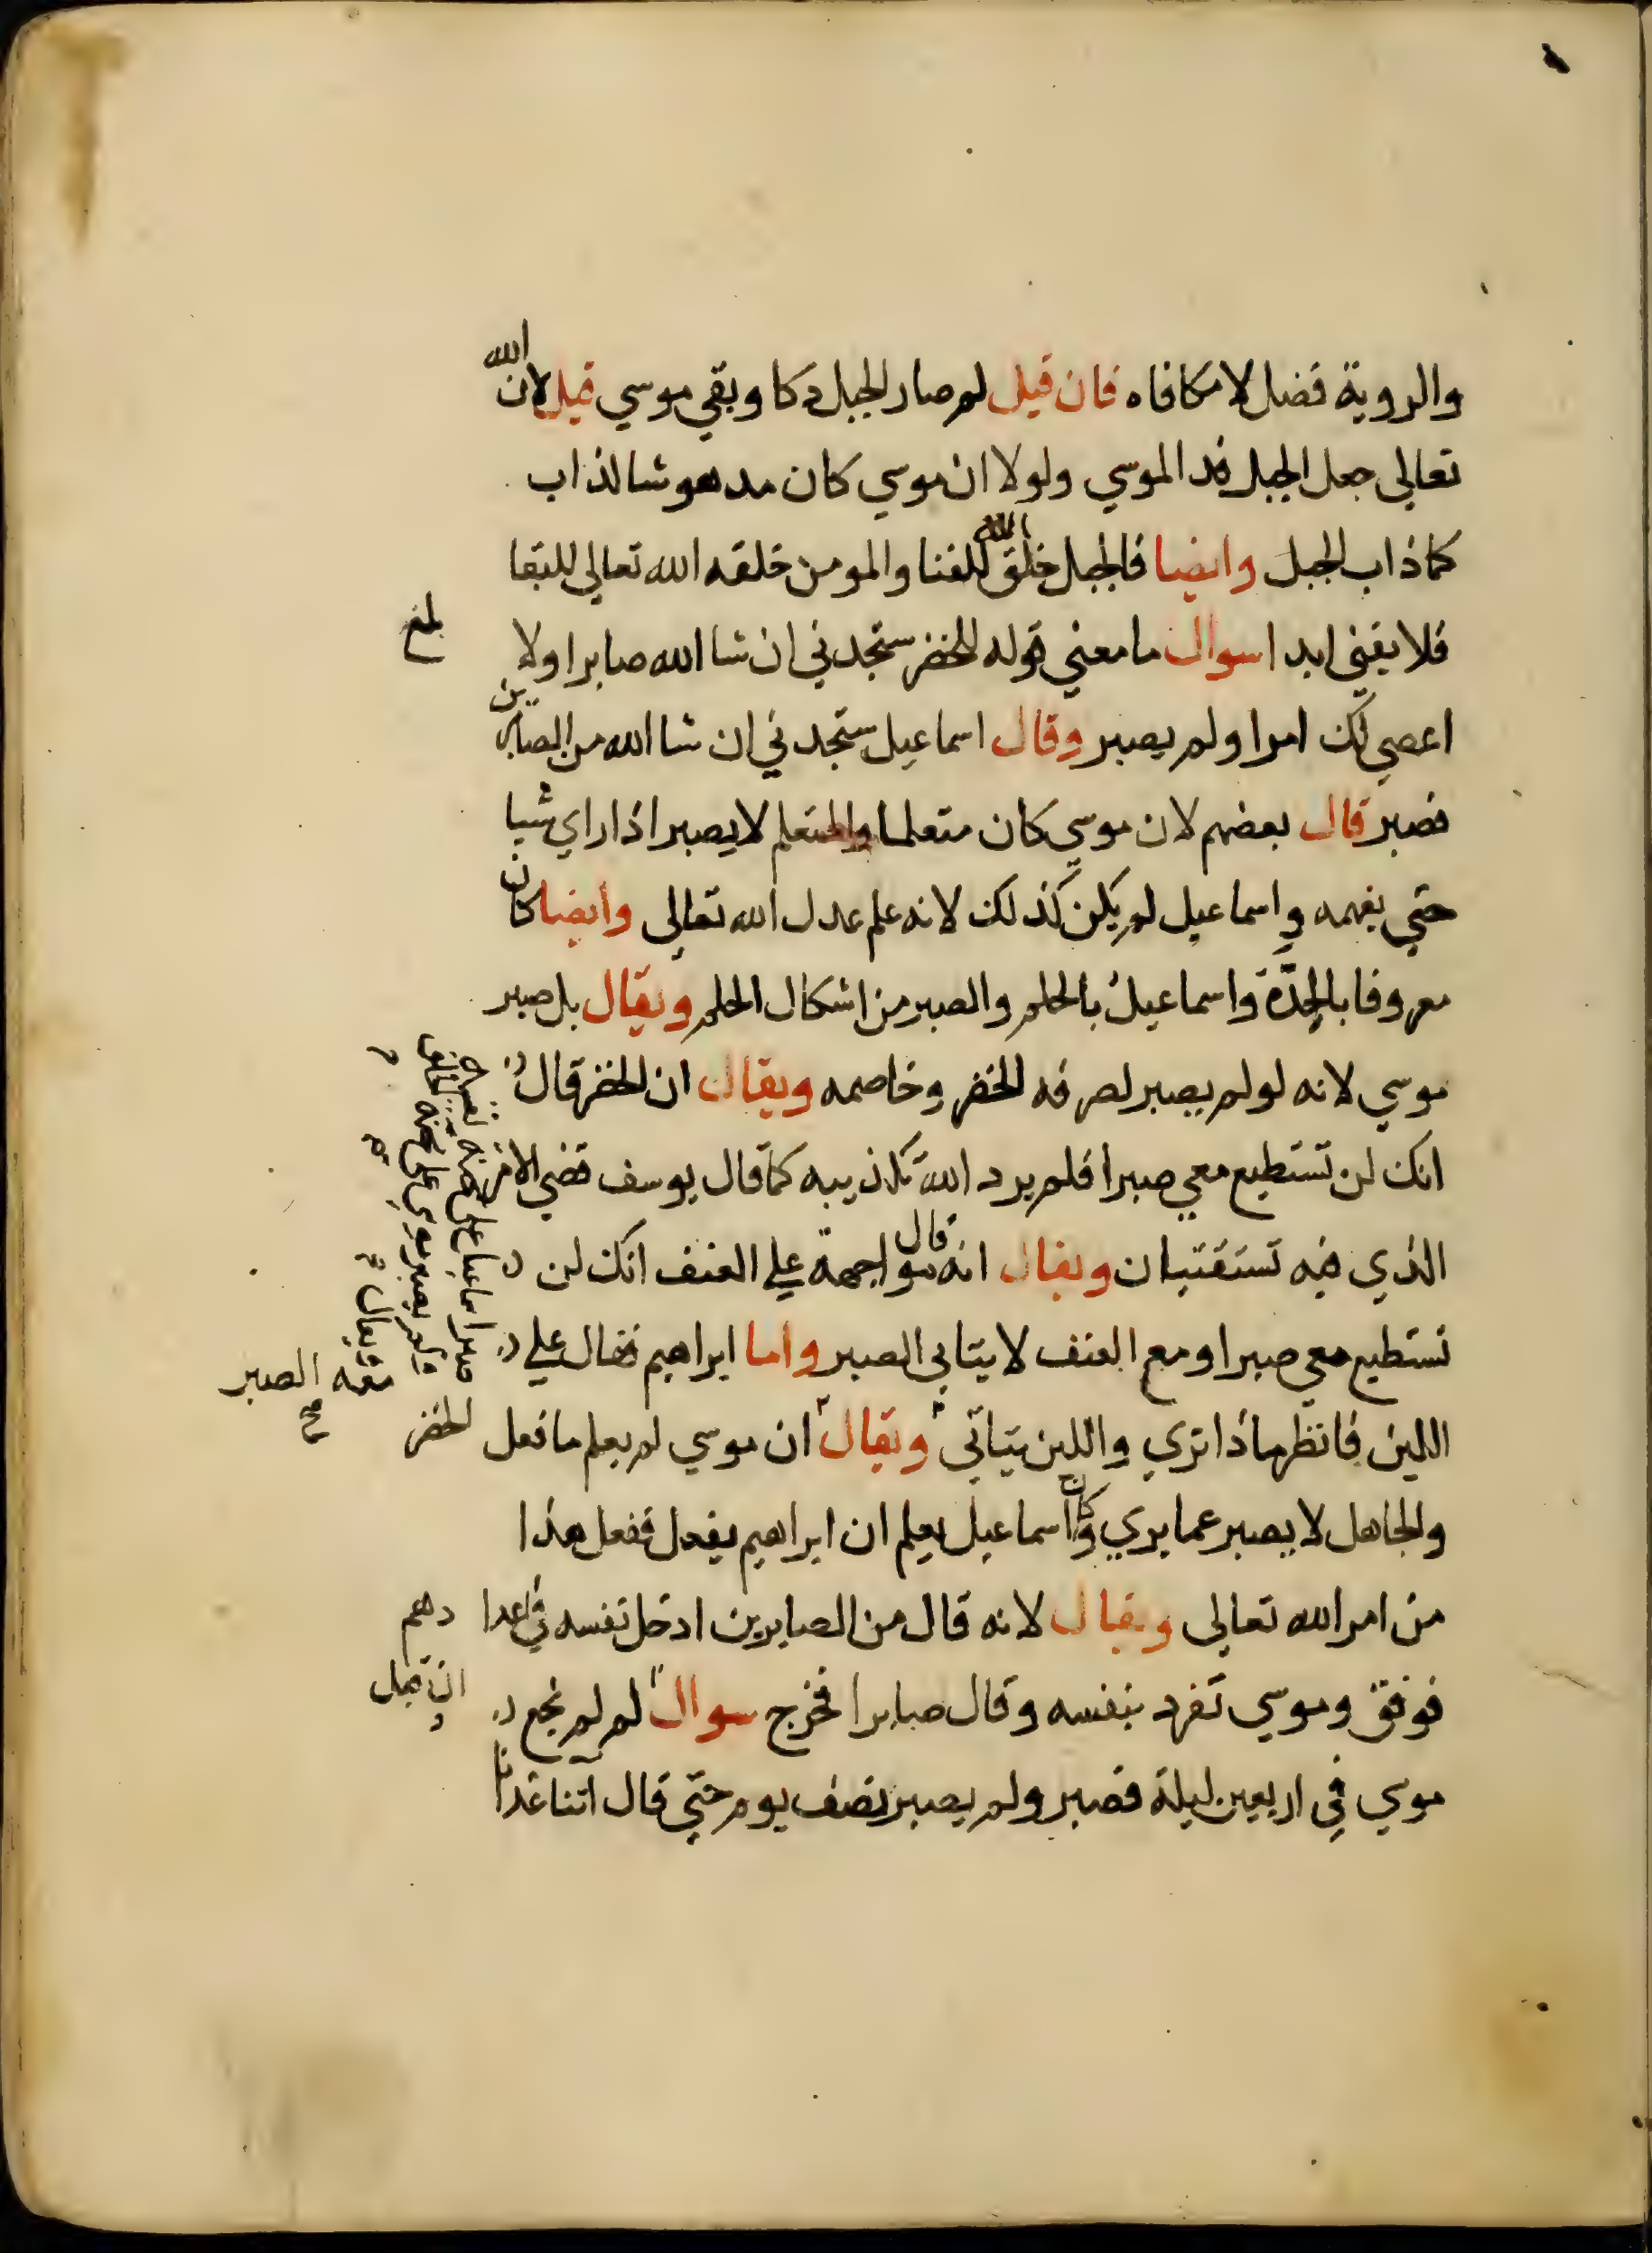 والروية فضل لا مكافاه فان قيل لم صار الجبل دكا وبقي موسي قيل لان الله
تعالي جعل الجبل فدا لموسي ولولا ان موسي كان مدهوشا لذاب
كما ذاب الجبل وايضا فالجبل خلق الله للفنا والمومن خلقه الله تعالي للبقا
فلا يفني ابدا سوال ما معني قوله للخضر ستجدني ان شا الله صابرا ولا
بلغ
اعصي لك امرا ولم يصبر وقال اسماعيل ستجدني ان شا الله من الصابرين
فصبر قال بعضهم لان موسي كان متعلما والمتعلم لا يصبر اذا راي شيا
حتي يفهمه واسماعيل لم يكن كذلك لانه علم عدل الله تعالي وايضا كان
معروفا بالحِدَّة واسماعيل بالحلم والصبر من اشكال الحلم ويقال بل صبر
موسي لانه لو لم يصبر لصرفه الخضر وخاصمه ويقال ان الخضر قال
انك لن تستطيع معي صبرا فلم يرد الله تكذيبه كما قال يوسف قضي الامر
الذي فيه تستفتيان ويقال انه قال مواجهة علي العنف انك لن
تستطيع معي صبرا ومع العنف لا يتاتي الصبر واما ابراهيم فقال علي
اللين فانظر ماذا تري واللين يتاتي معه الصبر ويقال ان موسي لم يعلم ما فعل الخضر
صبر اسماعيل علي محنة نفسه
ولم يصبر موسي علي محنة
ويقال
والجاهل لا يصبر عما يري وكان اسماعيل يعلم ان ابراهيم يفعل ففعل هذا
من امر الله تعالي ويقال لانه قال من الصابرين ادخل نفسه في اعدادهم
فوفق وموسي تفرد بنفسه وقال صابرا فخرج سوال لم لم يجع
موسي في اربعين ليلة فصبر ولم يصبر نصف يوم حتي قال آتنا غدانا